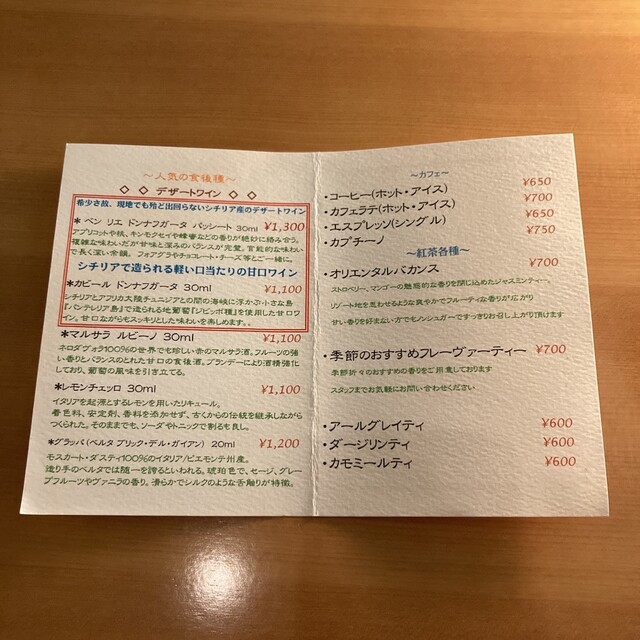 ～人気の食後種～
◇ ◇ デザートワイン ◇ ◇
希少さ故、現地でも殆ど出回らないシチリア産のデザートワイン
＊ ベン リエ ドンナフガータ パッシート 30ml ¥1,300
アプリコットや桃、キンモクセイや蜂蜜などの香りが絶妙に絡み合う。
複雑な味わいだが甘味と深みのバランスが完璧。官能的な味わい
で長く深い余韻。 フォアグラやチョコレート・チーズ等とご一緒に。
シチリアで造られる軽い口当たりの甘口ワイン
＊カビール ドンナフガータ 30ml ¥1,100
シチリアとアフリカ大陸チュニジアとの間の海峡に浮かぶ小さな島
『パンテレリア島』で造られる地葡萄『ジビッボ種』を使用した甘口ワ
イン。甘口ながらもスッキリとした味わいを楽しめます。。
＊マルサラ ルビーノ 30ml ¥1,100
ネロダヴォラ100％の世界でも珍しい赤のマルサラ酒。フルーツの強
い香りとバランスのとれた甘口の食後酒。ブランデーにより酒精強化
しており、葡萄の風味を引き立てる。
＊レモンチェッロ 30ml ¥1,100
イタリアを起源とするレモンを用いたリキュール。
着色料、安定剤、香料を添加せず、古くからの伝統を継承しながら
つくられた。そのままでも、ソーダやトニックで割るも良し。
＊グラッパ（ベルタ ブリック・デル・ガイアン） 20ml ¥1,200
モスカート・ダスティ100％のイタリア/ピエモンテ州産。
造り手のベルタでは随一を誇るといわれる。琥珀色で、セージ、グレー
プフルーツやヴァニラの香り。滑らかでシルクのような舌触りが特徴。
～カフェ～
・コーヒー(ホット・アイス) ¥650
・カフェラテ(ホット・アイス) ¥700
・エスプレッソ(シングル) ¥650
・カプチーノ ¥750
～紅茶各種～
・オリエンタルバカンス ¥700
ストロベリー、マンゴーの魅惑的な香りを閉じ込めたジャスミンティー。
リゾート地を思わせるような爽やかでフルーティーな香りが広がり
甘い香りを好まない方でもノンシュガーですっきりお召し上がり頂けます
・季節のおすすめフレーヴァーティー ¥700
季節折々のおすすめの香りをご用意しております
スタッフまでお気軽にお問い合わせください
・アールグレイティ ¥600
・ダージリンティ ¥600
・カモミールティ ¥600